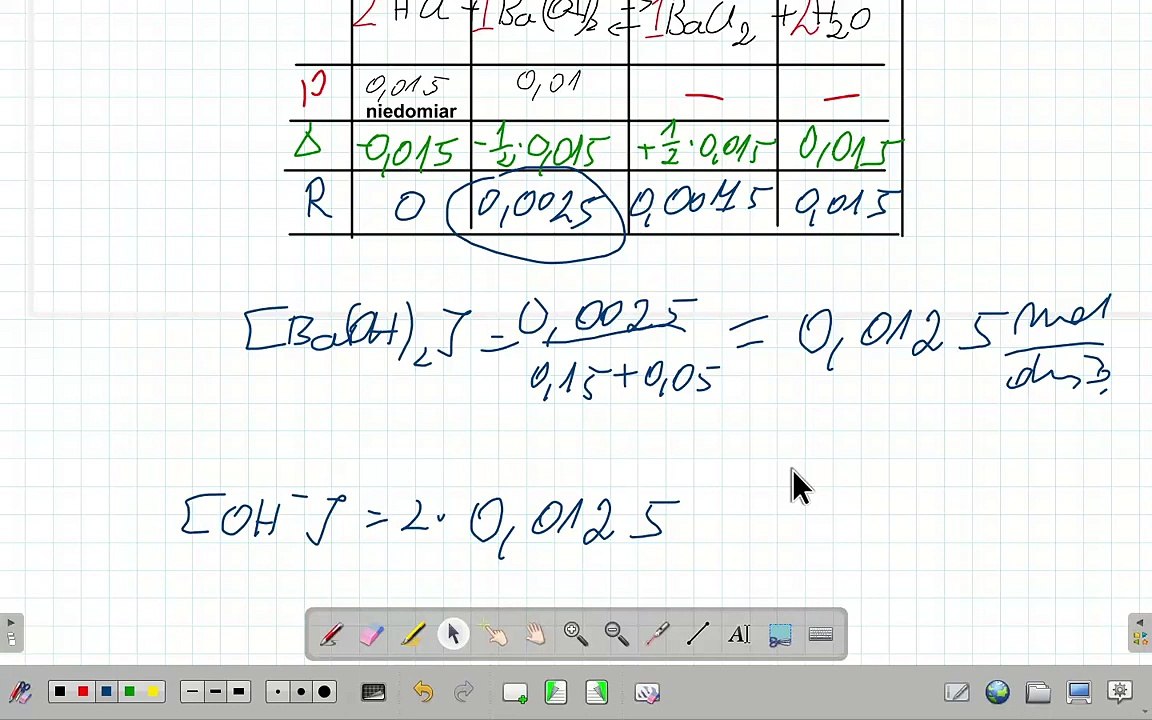 2 HCl + 1 Ba(OH)₂ ⇄ 1 BaCl₂ + 2 H₂O
P 0,015 0,01 — —
niedomiar
Δ -0,015 -1/2·0,015 +1/2·0,015 0,015
R 0 0,0025 0,0075 0,015
[Ba(OH)₂] = 0,0025 / 0,15+0,05 = 0,0125 mol/dm³
[OH⁻] = 2·0,0125
A